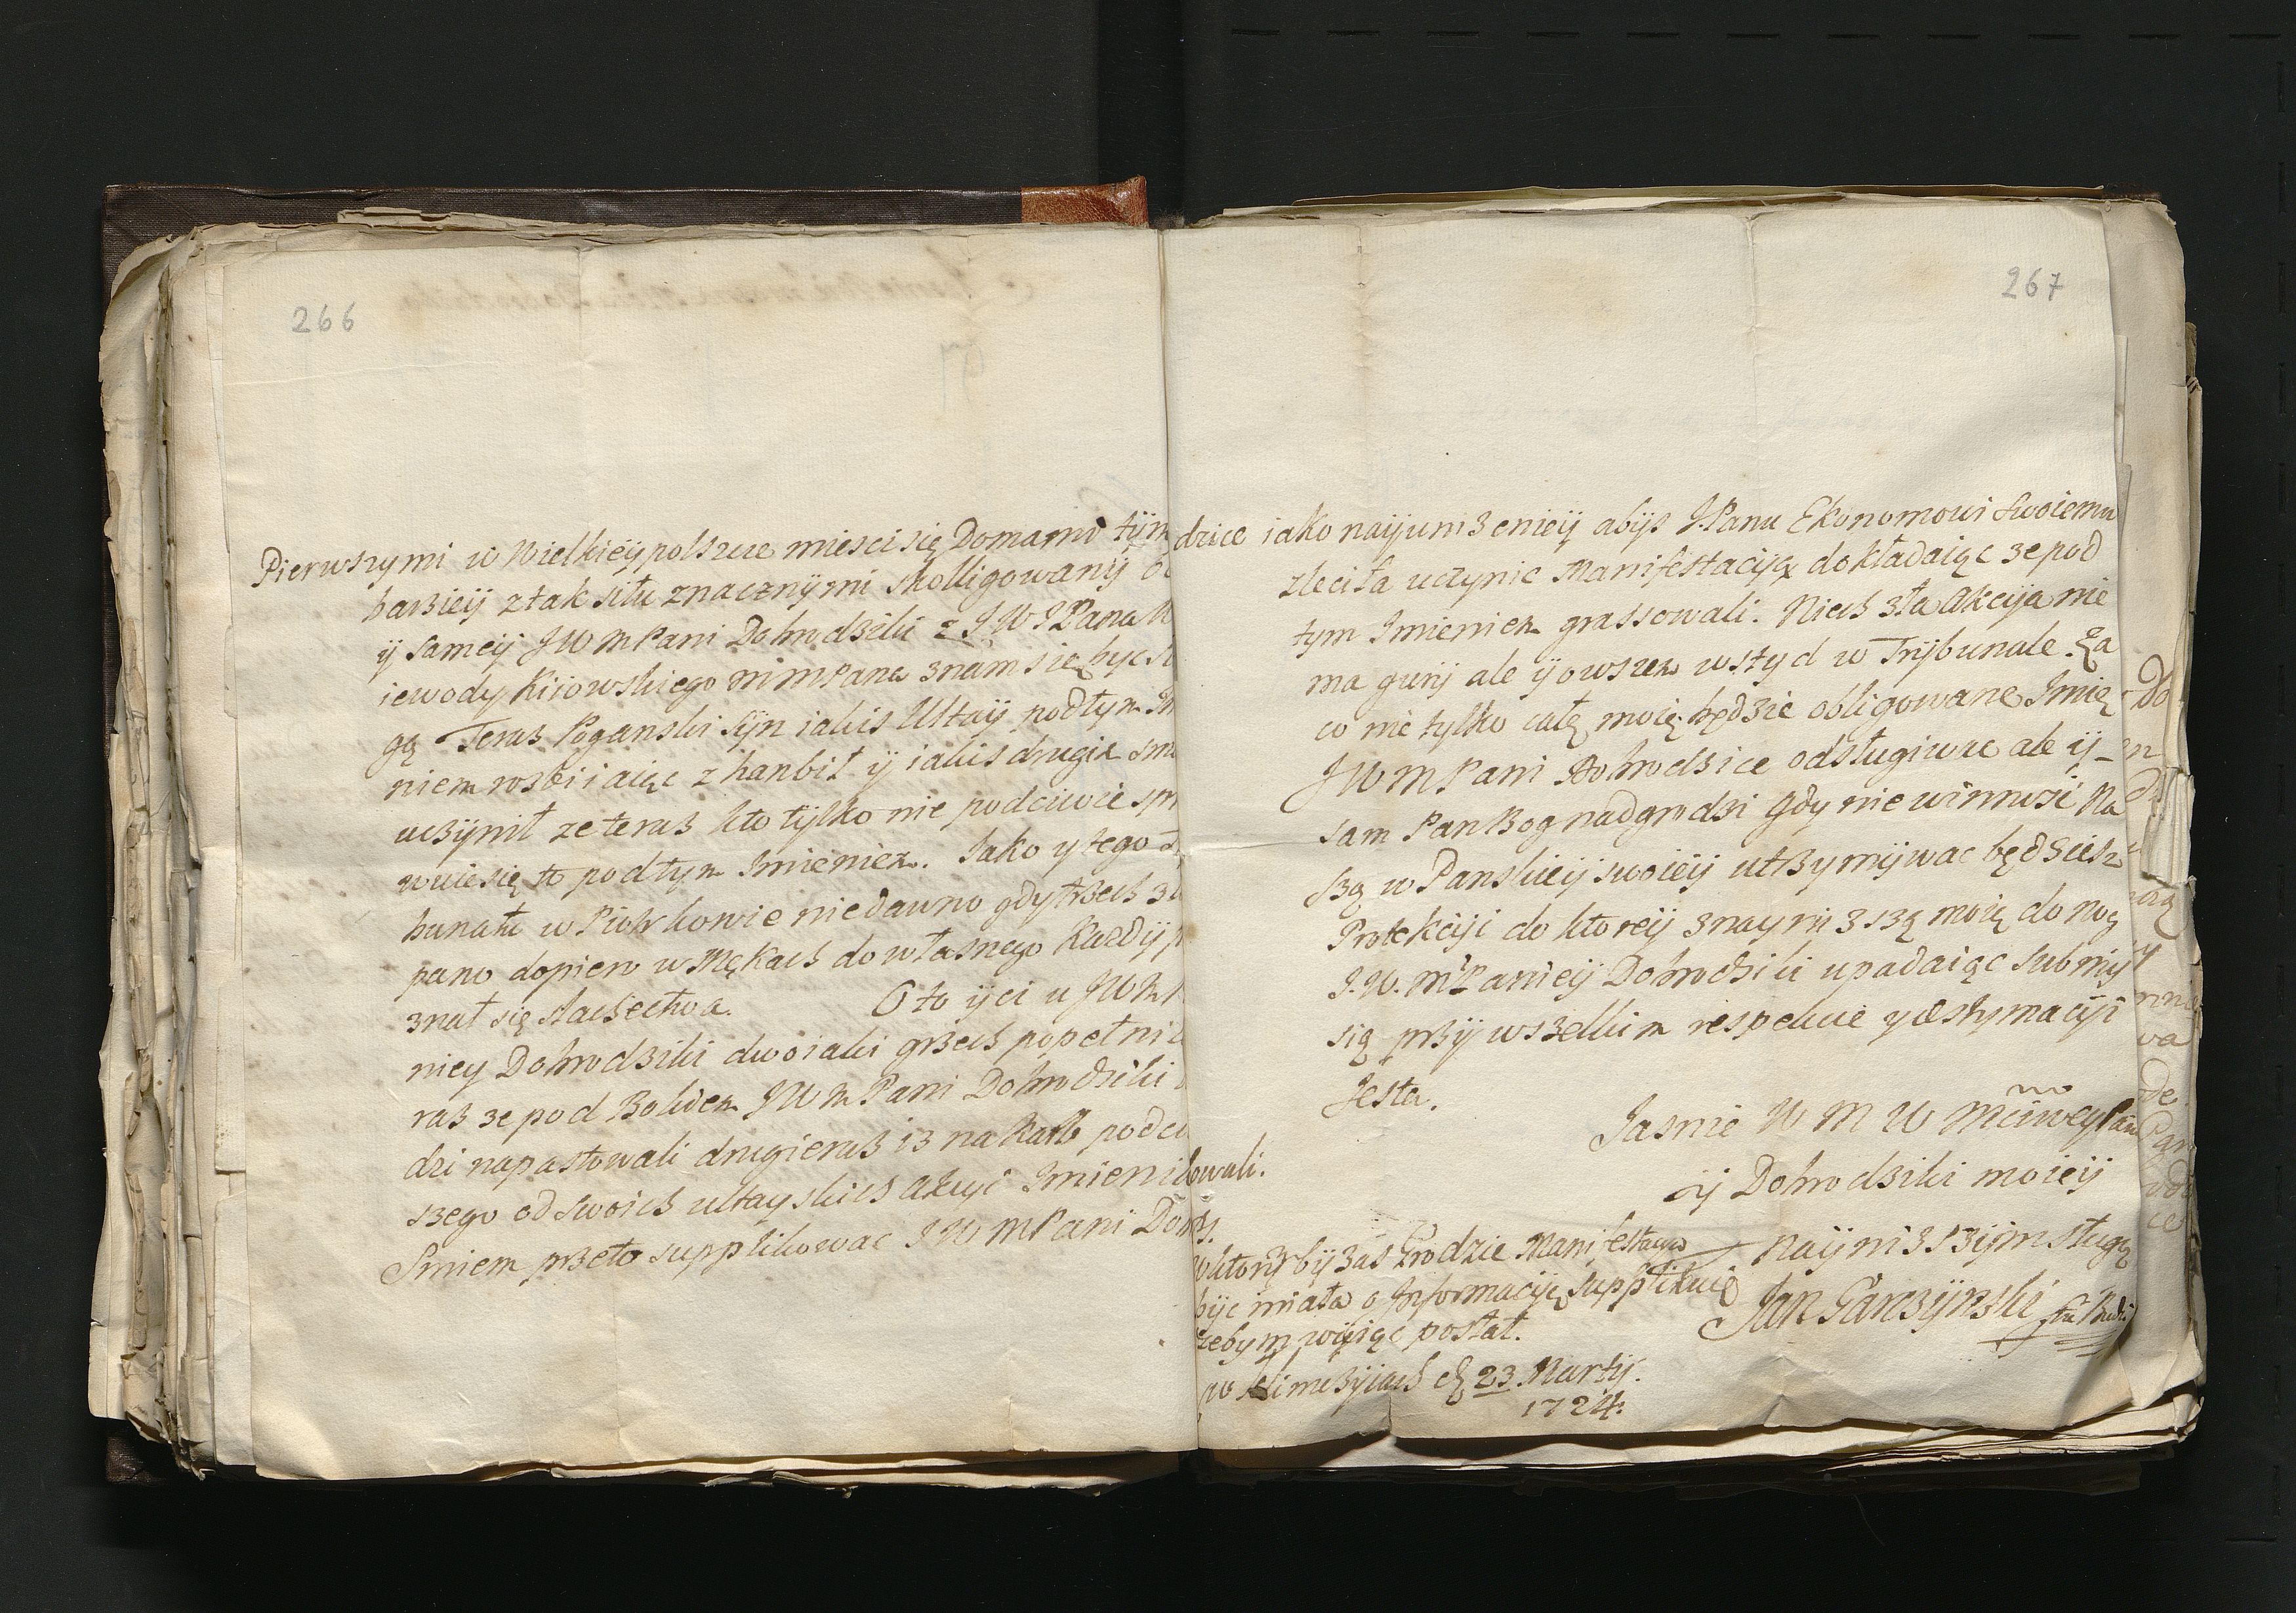 266
Pierwszymi w Wielkieÿpolszcze miesci się Domami tÿm
barzieÿ z tak siłu znacznÿmi skolligowanÿ
ÿ sameÿ JWMPani Dobrodziki z JWJPana
iewody Kiiowskiego MMPana znam się byc
gą Teraz Poganski sÿn iakis Ultaÿ pod tym
niem rozbiiaiąc zhanbił ÿ iakis drugim
uczÿnił ze teraz kto tylko nie podciwie
wuie się to pod tym Imieniem. Jako y tego
bunału w Piotrkowie niedawno gdy trzech
pano dopiero w Mękach do własnego Kazdÿ
znał się slachectwa. Oto ÿ ci u JWM
niey Dobrodziki dwoiaki grzech popełnil
raz ze pod Bokiem JWMPani Dobrodziki
dzi napastowali drugi eraz iz na Karb podci
szego od swoich ultayskich akcyi Imienikowali.
Smiem przeto supplikowac JWMPani Dobro
267
dzice iako naÿunizenieÿ abÿs J.Panu Ekonomowi swoiemu
zleciła uczynic Manifestacÿią dokładaiąc ze pod
tym Imieniem grassowali. Niech zła Akcÿia nie
ma gurÿ ale ÿ owszem wstyd w Trÿbunale. Za
co nie tylko całę moię będzie obligowane Imię
JWMPani Dobrodzice odsługiwac ale ÿ
sam Pan Bog nadgrodzi gdy niewinnosi Na
szą w Panskieÿ swoieÿ utrzymÿwac będziesz
Protekcÿi do ktoreÿ znaynizszą moię do nog
J.W.MPanieÿ Dobrodziki upadaiąc submiÿ
się przÿ wszelkim respekcie y æstymacÿi
Jestem.
Jasnie W M W Mciwey Pan
ÿ Dobrodziki moieÿ
Naÿnizszÿm sługą
Jan Garczÿnski
w ktorÿ bÿ zas Grodzie Manifestacya
bÿc miała o Informacÿią supplikuię
zebym wÿiąc posłał.
23 Martÿ.
1724.